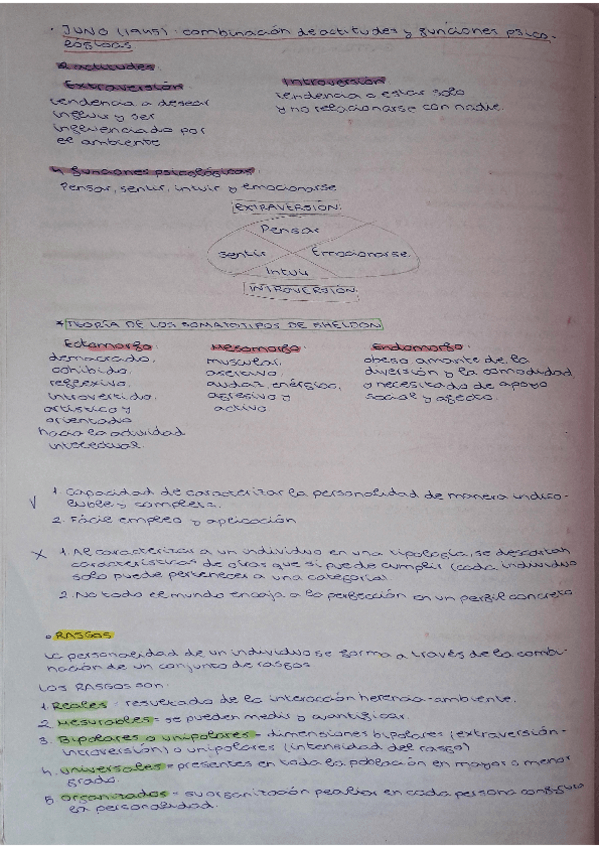 · JUNG (1945): combinación de actitudes y funciones psico-
lógicas
2 actitudes
Extraversión
tendencia a desear
influir y ser
influenciado por
el ambiente
Introversión
tendencia a estar solo
y no relacionarse con nadie.
4 funciones psicológicas
Pensar, sentir, intuir y emocionarse
EXTRAVERSIÓN.
Pensar
sentir
Emocionarse.
Intuir
INTROVERSIÓN
* TEORÍA DE LOS SOMATOTIPOS DE SHELDON
Ectomorfo:
demacrado,
cohibido,
reflexivo,
introvertido,
artístico y
orientado
hacia la actividad
intelectual.
Mesomorfo:
muscular,
asertivo,
audaz, enérgico,
agresivo y
activo
Endomorfo:
obeso amante de la
diversión y la comodidad
o necesitado de apoyo
social y afecto.
√
1. Capacidad de caracterizar la personalidad de manera indiso-
luble y completa.
2. Fácil empleo y aplicación
x
1. Al caracterizar a un individuo en una tipología, se descartan
características de otras que si puede cumplir (cada individuo
solo puede pertenecer a una categoría)
2. No todo el mundo encaja a la perfección en un perfil concreto
• RASGOS
La personalidad de un individuo se forma a través de la combi-
nación de un conjunto de rasgos
LOS RASGOS SON:
1. Reales - resultado de la interacción herencia-ambiente.
2. Mesurables = se pueden medir o cuantificar.
3. Bipolares o unipolares - dimensiones bipolares (extraversión-
introversión) o unipolares (intensidad del rasgo)
4. universales = presentes en toda la población en mayor o menor
grado.
5. organizados - su organización peculiar en cada persona configura
la personalidad.